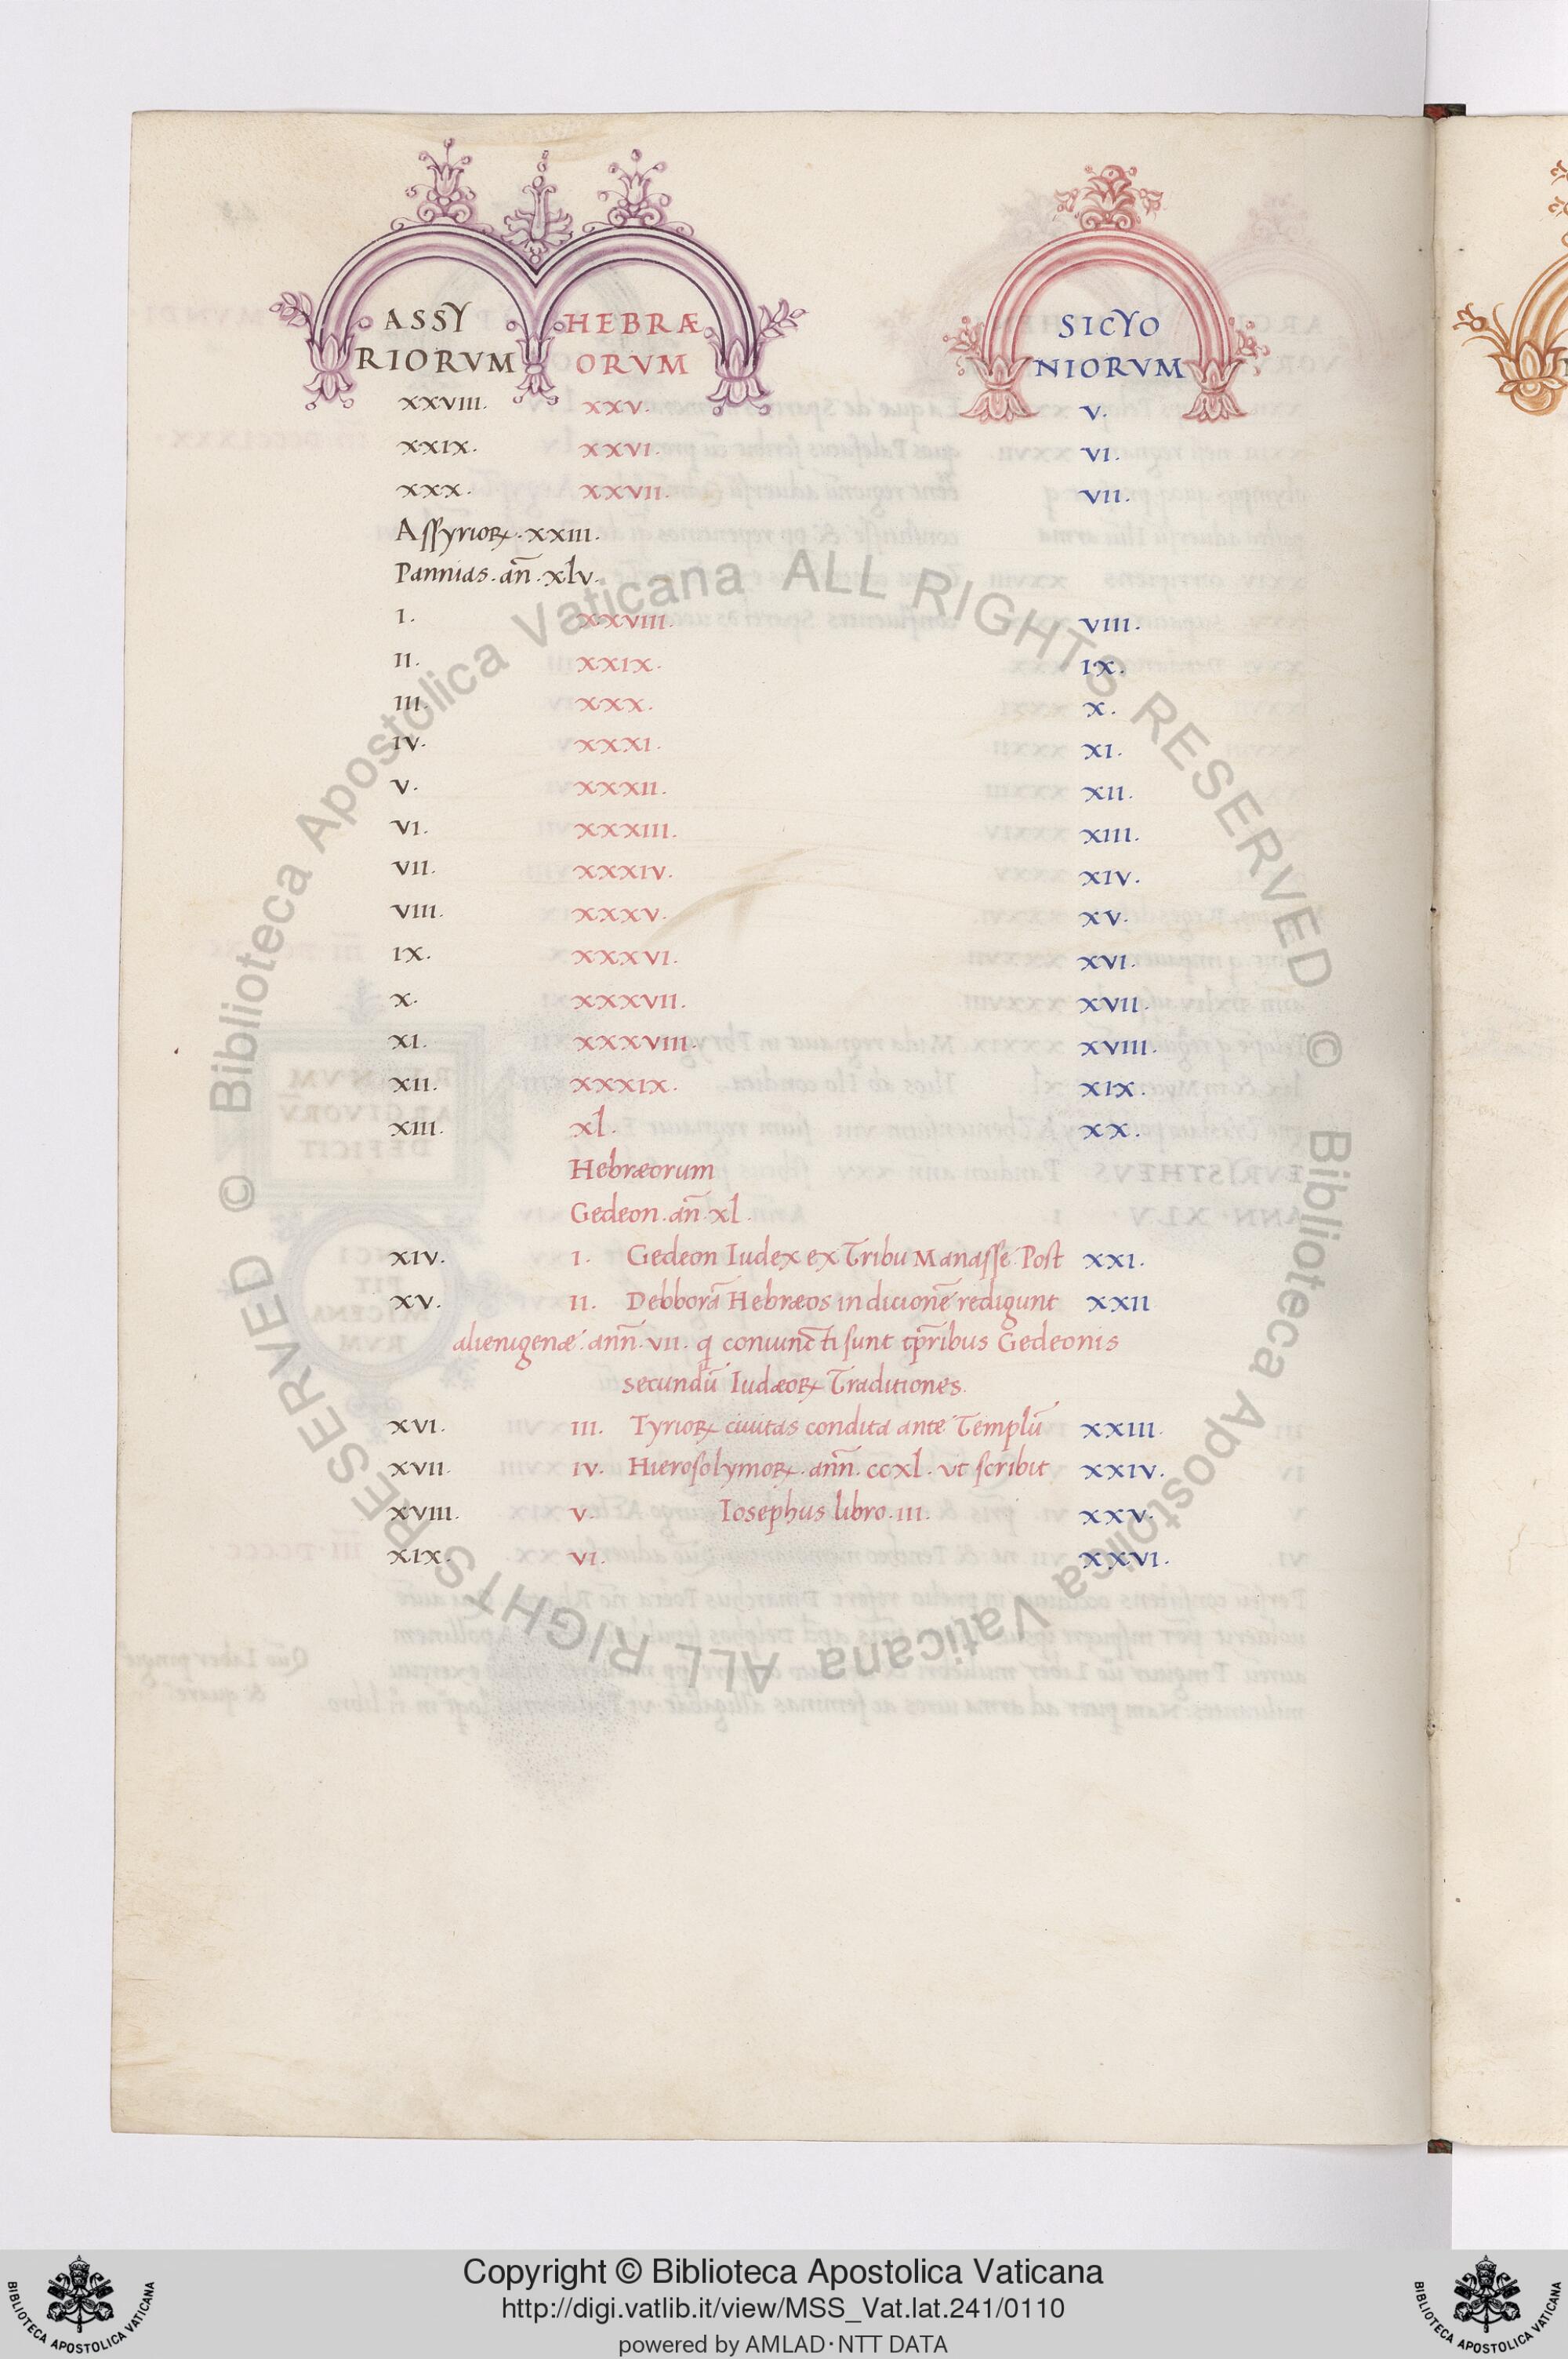 ASSY HEBRÆ SICYO
RIORVM ORVM NIORVM
XXVIII. XXV. V.
XXIX. XXVI. VI.
XXX. XXVII. VII.
Assyrioꝝ. XXIII.
Pannias. añ. xlv.
I. XXVIII. VIII.
II. XXIX. IX.
III. XXX. X.
IV. XXXI. XI.
V. XXXII. XII.
VI. XXXIII. XIII.
VII. XXXIV. XIV.
VIII. XXXV. XV.
IX. XXXVI. XVI.
X. XXXVII. XVII.
XI. XXXVIII. XVIII.
XII. XXXIX. XIX.
XIII. xl. XX.
Hebræorum
Gedeon. añ. xl.
XIV. I. Gedeon Iudex ex Tribu Manasse. Post XXI.
XV. II. Debborā Hebræos in dicionē redigunt XXII
alienigenæ. anñ. VII. q̄ coniuncti sunt tp̄ribus Gedeonis
secundū Iudæoꝝ Traditiones.
XVI. III. Tyrioꝝ ciuitas condita ante Templū XXIII.
XVII. IV. Hierosolymoꝝ. anñ. ccxl. vt scribit XXIV.
XVIII. V. Iosephus libro. III. XXV.
XIX. VI. XXVI.
© Biblioteca Apostolica Vaticana ALL RIGHTS RESERVED
© Biblioteca Apostolica Vaticana ALL RIGHTS RESERVED
Copyright © Biblioteca Apostolica Vaticana
http://digi.vatlib.it/view/MSS_Vat.lat.241/0110
powered by AMLAD·NTT DATA
BIBLIOTECA APOSTOLICA VATICANA
BIBLIOTECA APOSTOLICA VATICANA